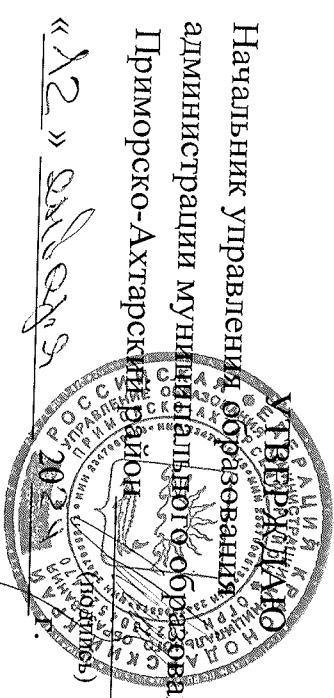 УТВЕРЖДАЮ
Начальник управления образования
администрации муниципального образова
Приморско-Ахтарский район
(подпись)
«12» января 2024 г.